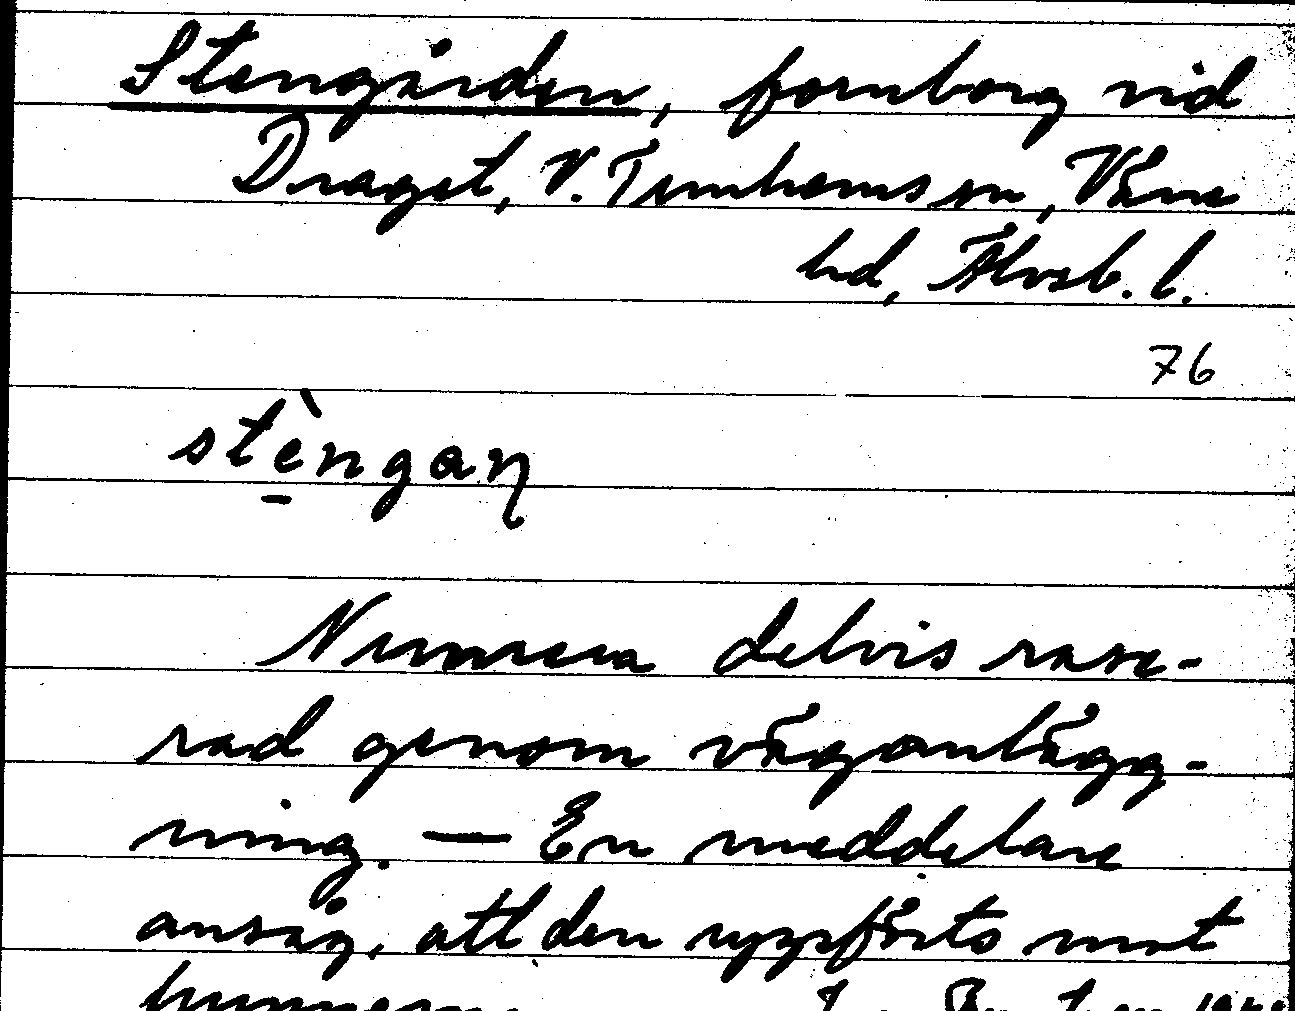 Stengården, fornborg vid
Draget, V. Tunhems sn, Väne
hd, Älvsb. l.
76
stèngaɳ
Numera delvis rase-
rad genom väganlägg-
ning. — En meddelare
ansåg, att den uppförts mot
hunnerna